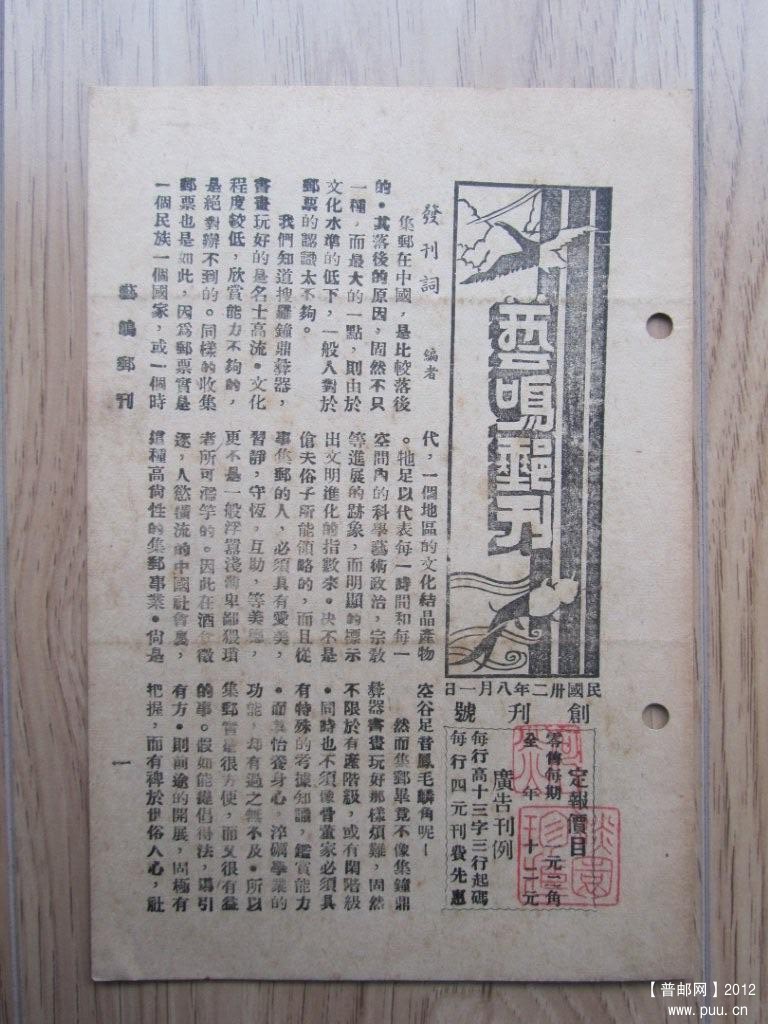 藝鳴郵刊
民國卅二年八月一日
創刊號
定報價目
零售每期 一元二角
全年 十二元
廣告刊例
每行高十三字三行起碼
每行四元刊費先惠
發刊詞 編者
集郵在中國，是比較落後
的。其落後的原因，固然不只
一種，而最大的一點，則由於
文化水準的低下，一般人對於
郵票的認識太不夠。
我們知道搜羅鐘鼎彝器，
書畫玩好的是名士高流。文化
程度較低，欣賞能力不夠的，
是絕對辦不到的。同樣的收集
郵票也是如此，因爲郵票實是
一個民族一個國家，或一個時
代，一個地區的文化結晶產物
。牠足以代表每一時間和每一
空間內的科學藝術政治，宗教
等進展的跡象，而明顯的標示
出文明進化的指數來。决不是
傖夫俗子所能領略的，而且從
事集郵的人，必須具有愛美，
習靜，守恆，互助，等美德，
更不是一般浮囂淺薄卑鄙猥瑣
者所可濫竽的。因此在酒食徵
逐，人慾橫流的中國社會裏，
這種高尙性的集郵事業。尙是
空谷足音鳳毛麟角呢！
然而集郵畢竟不像集鐘鼎
彝器書畫玩好那樣煩難，固然
不限於有產階級，或有閑階級
。同時也不須像骨董家必須具
有特殊的考據知識，鑑賞能力
。而其怡養身心，淬礪學業的
功能，却有過之無不及。所以
集郵實是很方便，而又很有益
的事。假如能提倡得法，導引
有方。則前途的開展，固極有
把握，而有裨於世俗人心，社
藝鳴郵刊
一
【普邮网】2012
www.puu.cn